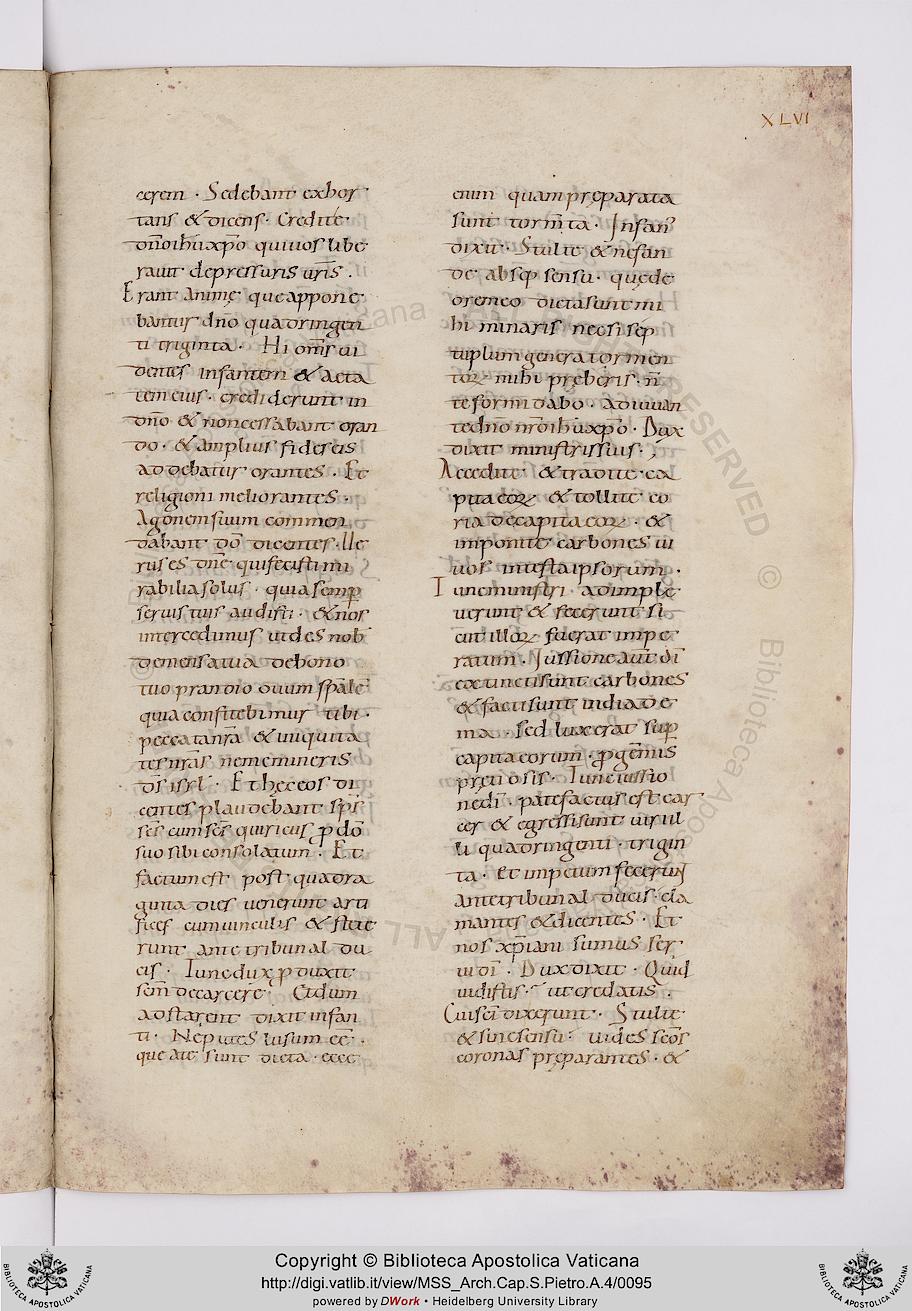 XLVI
cerem · Sedebant exhor
tans & dicens · Credite
dn̄o ih̄u xp̄o qui uos libe
rauit depressuris ur̄is .
Erant animę que appone
bantur dn̄o quadringen
ti triginta · Hi om̄s ui
dentes infantem & aeta
tem eius · crediderunt in
dn̄o & non cessabant oran
do · & amplius fides eis
addebatur orantes · Et
religioni meliorantes ·
Agonem suum commen
dabant dō dicentes · Ue
rus es dn̄e qui fecisti mi
rabilia solus · quia semp
seruis tuis audisti · & nos
intercedimus ut des nob
de mensa tua de bono
tuo prandio ouum sp̄ale
quia confitebimur tibi ·
peccata nr̄a & iniquita
tes nr̄as ne memineris
ds̄ isrl · Et hęc eos di
centes plaudebant sp̄s
sc̄s cum sc̄s quiricus p dō
suo sibi consolatum · Et
factum est post quadra
ginta dies uenerunt arti
fices cum uinculis & stete
runt ante tribunal du
cis · Tunc dux p duxit
sc̄m de carcere · Et dum
adstarent dixit infan
ti · Ne putes lusum eē ·
que a te sunt dicta · ecce
enim quam pręparata
sunt torm̄ta · Infans
dixit · Stulte & nefan
de absq sensu · quę de
orem eo dicta sunt mi
hi minaris nec si sep
tuplum genera tormen
toꝝ mihi pręberis · n̄
te formidabo · adiuuan
te dn̄o nr̄o ih̄u xp̄o · Dux
dixit ministris suis · ,
Accedite & tradite ca
pita eoꝝ & tollite co
ria de capita eoꝝ · &
imponite carbones ui
uos in testa ipsorum ·
Tunc ministri adimple
uerunt & fecerunt si
cut illoꝝ fuerat impe
ratum · Iussione aut̄ dī
extincti sunt carbones
& facti sunt in diade
ma · sed luxerat sup
capita eorum · p gem̄is
pretiosis · Tunc iussio
ne dī · patefactus est car
cer & egressi sunt uiri il
li quadringenti · trigin
ta · Et impetum fecerunt
ante tribunal ducis · cla
mantes & dicentes · Et
nos xp̄iani sumus ser
ui dī · Dux dixit · Quid
uidistis · ut credatis .
Cui sc̄i dixerunt · Stulte
& sine sensu · uides sc̄os
coronas pręparantes · &
Copyright © Biblioteca Apostolica Vaticana
http://digi.vatlib.it/view/MSS_Arch.Cap.S.Pietro.A.4/0095
powered by DWork • Heidelberg University Library